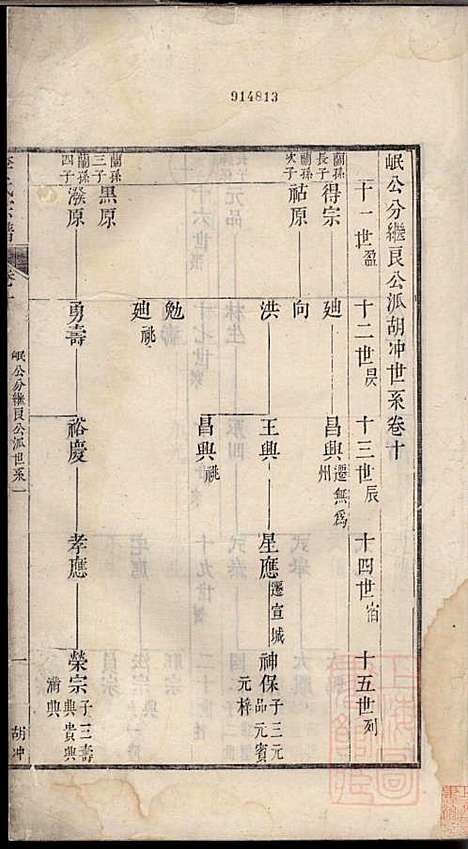 914813
岷公分繼良公派胡冲世系卷十
十一世盈
十二世昃
十三世辰
十四世宿
十五世列
蘭孫長子
得宗
廸
昌興遷無為州
蘭孫次子
祜原
向
洪
王興
星應遷宣城
神保子三元品元賓元梓
勉
昌興祧
廸祧
蘭孫三子
黑原
蘭孫四子
潑原
勇壽
裕慶
孝應
榮宗子三壽興貴興清興
岷公分繼良公派世系
一
胡冲